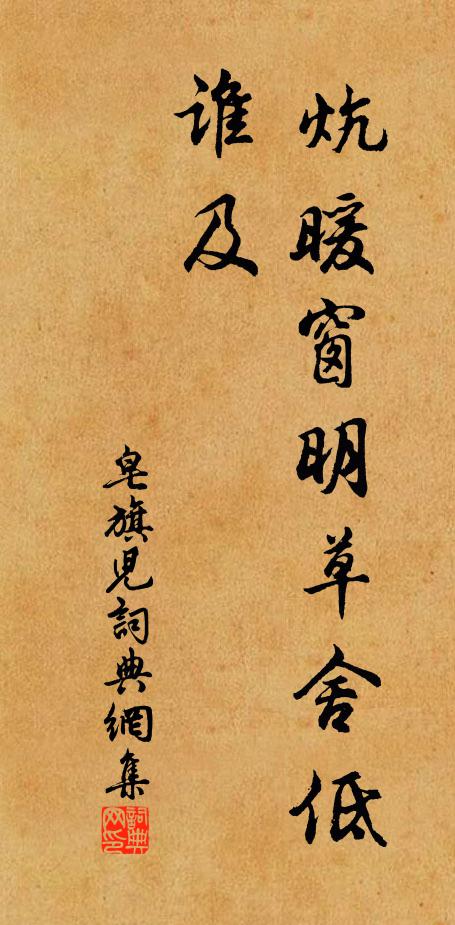 炕暖窗明草舍低
誰及
皂旗児詞典網集
詞典网印